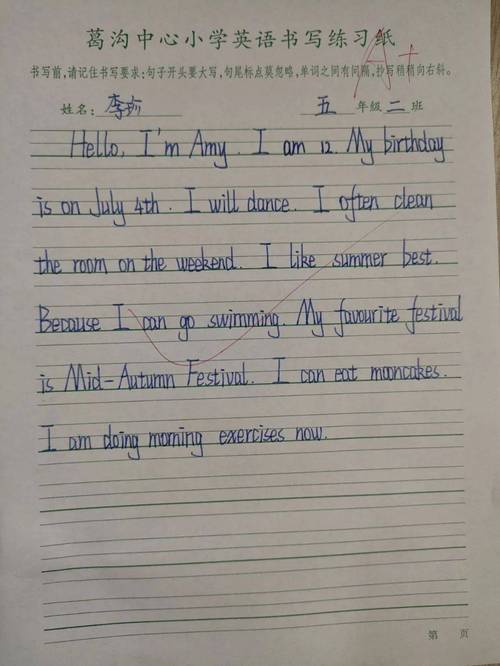 葛沟中心小学英语书写练习纸
A+
书写前,请记住书写要求:句子开头要大写,句尾标点莫忽略,单词之间有间隔,抄写稍稍向右斜。
姓名: 李 五 年级 二 班
Hello, I'm Amy. I am 12. My birthday
is on July 4th. I will dance. I often clean
the room on the weekend. I like summer best.
Because I can go swimming. My favourite festival
is Mid-Autumn Festival. I can eat mooncakes.
I am doing morning exercises now.
第 页